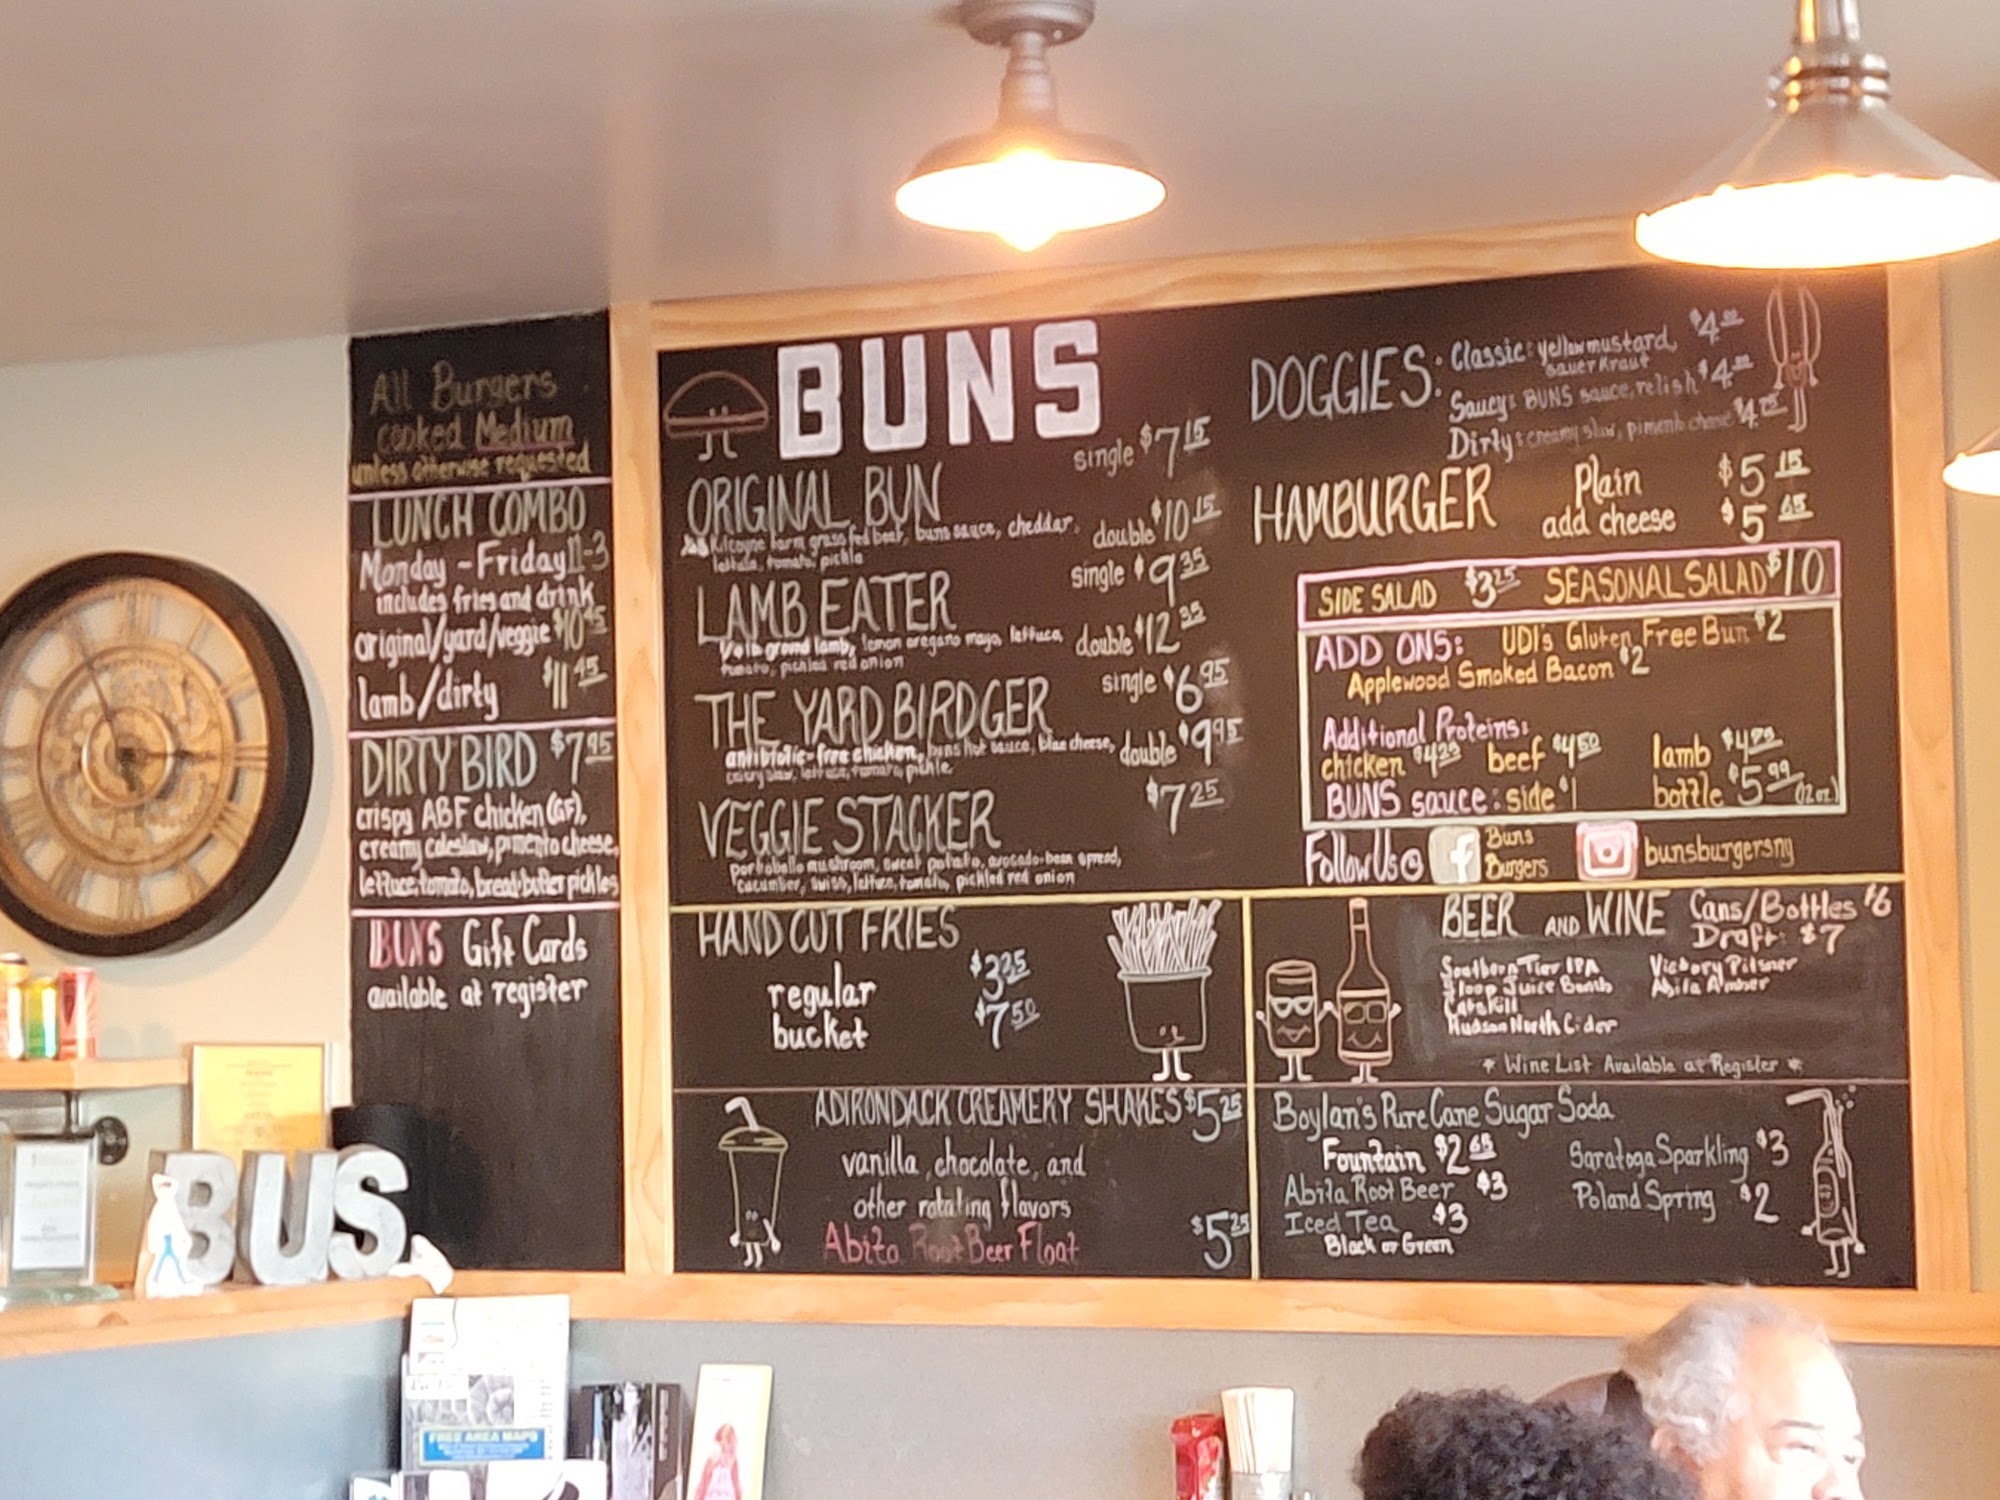 All Burgers
cooked Medium
unless otherwise requested
LUNCH COMBO
Monday - Friday 11-3
includes fries and drink
original/yard/veggie $10.45
lamb/dirty $11.45
DIRTY BIRD $7.95
crispy ABF chicken (GF),
creamy coleslaw, pimento cheese,
lettuce, tomato, bread+butter pickles
BUNS Gift Cards
available at register
BUNS
ORIGINAL BUN single $7.15
Kilcoyne farm grass fed beef, buns sauce, cheddar, double $10.15
lettuce, tomato, pickle
LAMB EATER single $9.35
ground lamb, lemon oregano mayo, lettuce, double $12.35
tomato, pickled red onion
THE YARD BIRDGER single $6.95
antibiotic-free chicken, buns hot sauce, blue cheese, double $9.95
celery slaw, lettuce, tomato, pickle
VEGGIE STACKER $7.25
portobello mushroom, sweet potato, avocado-bean spread,
cucumber, swiss, lettuce, tomato, pickled red onion
HAND CUT FRIES
regular $3.25
bucket $7.50
ADIRONDACK CREAMERY SHAKES $5.25
vanilla, chocolate, and
other rotating flavors
Abita Root Beer Float $5.25
DOGGIES: Classic: yellow mustard, $4.00
sauerKraut
Saucy: BUNS sauce, relish $4.00
Dirty: creamy slaw, pimento cheese $4.75
HAMBURGER Plain $5.15
add cheese $5.65
SIDE SALAD $3.25 SEASONAL SALAD $10
ADD ONS: UDI's Gluten Free Bun $2
Applewood Smoked Bacon $2
Additional Proteins:
chicken $4.25 beef $4.50 lamb $4.75
BUNS sauce: side $1 bottle $5.99 (12oz)
Follow Us @ f Buns
Burgers
bunsburgersny
BEER AND WINE Cans/Bottles $6
Draft: $7
Southern Tier IPA Victory Pilsner
Sloop Juice Bomb Abita Amber
Catskill
Hudson North Cider
* Wine List Available at Register *
Boylan's Pure Cane Sugar Soda
Fountain $2.65 Saratoga Sparkling $3
Abita Root Beer $3 Poland Spring $2
Iced Tea $3
Black or Green
BUS
FREE AREA MAPS